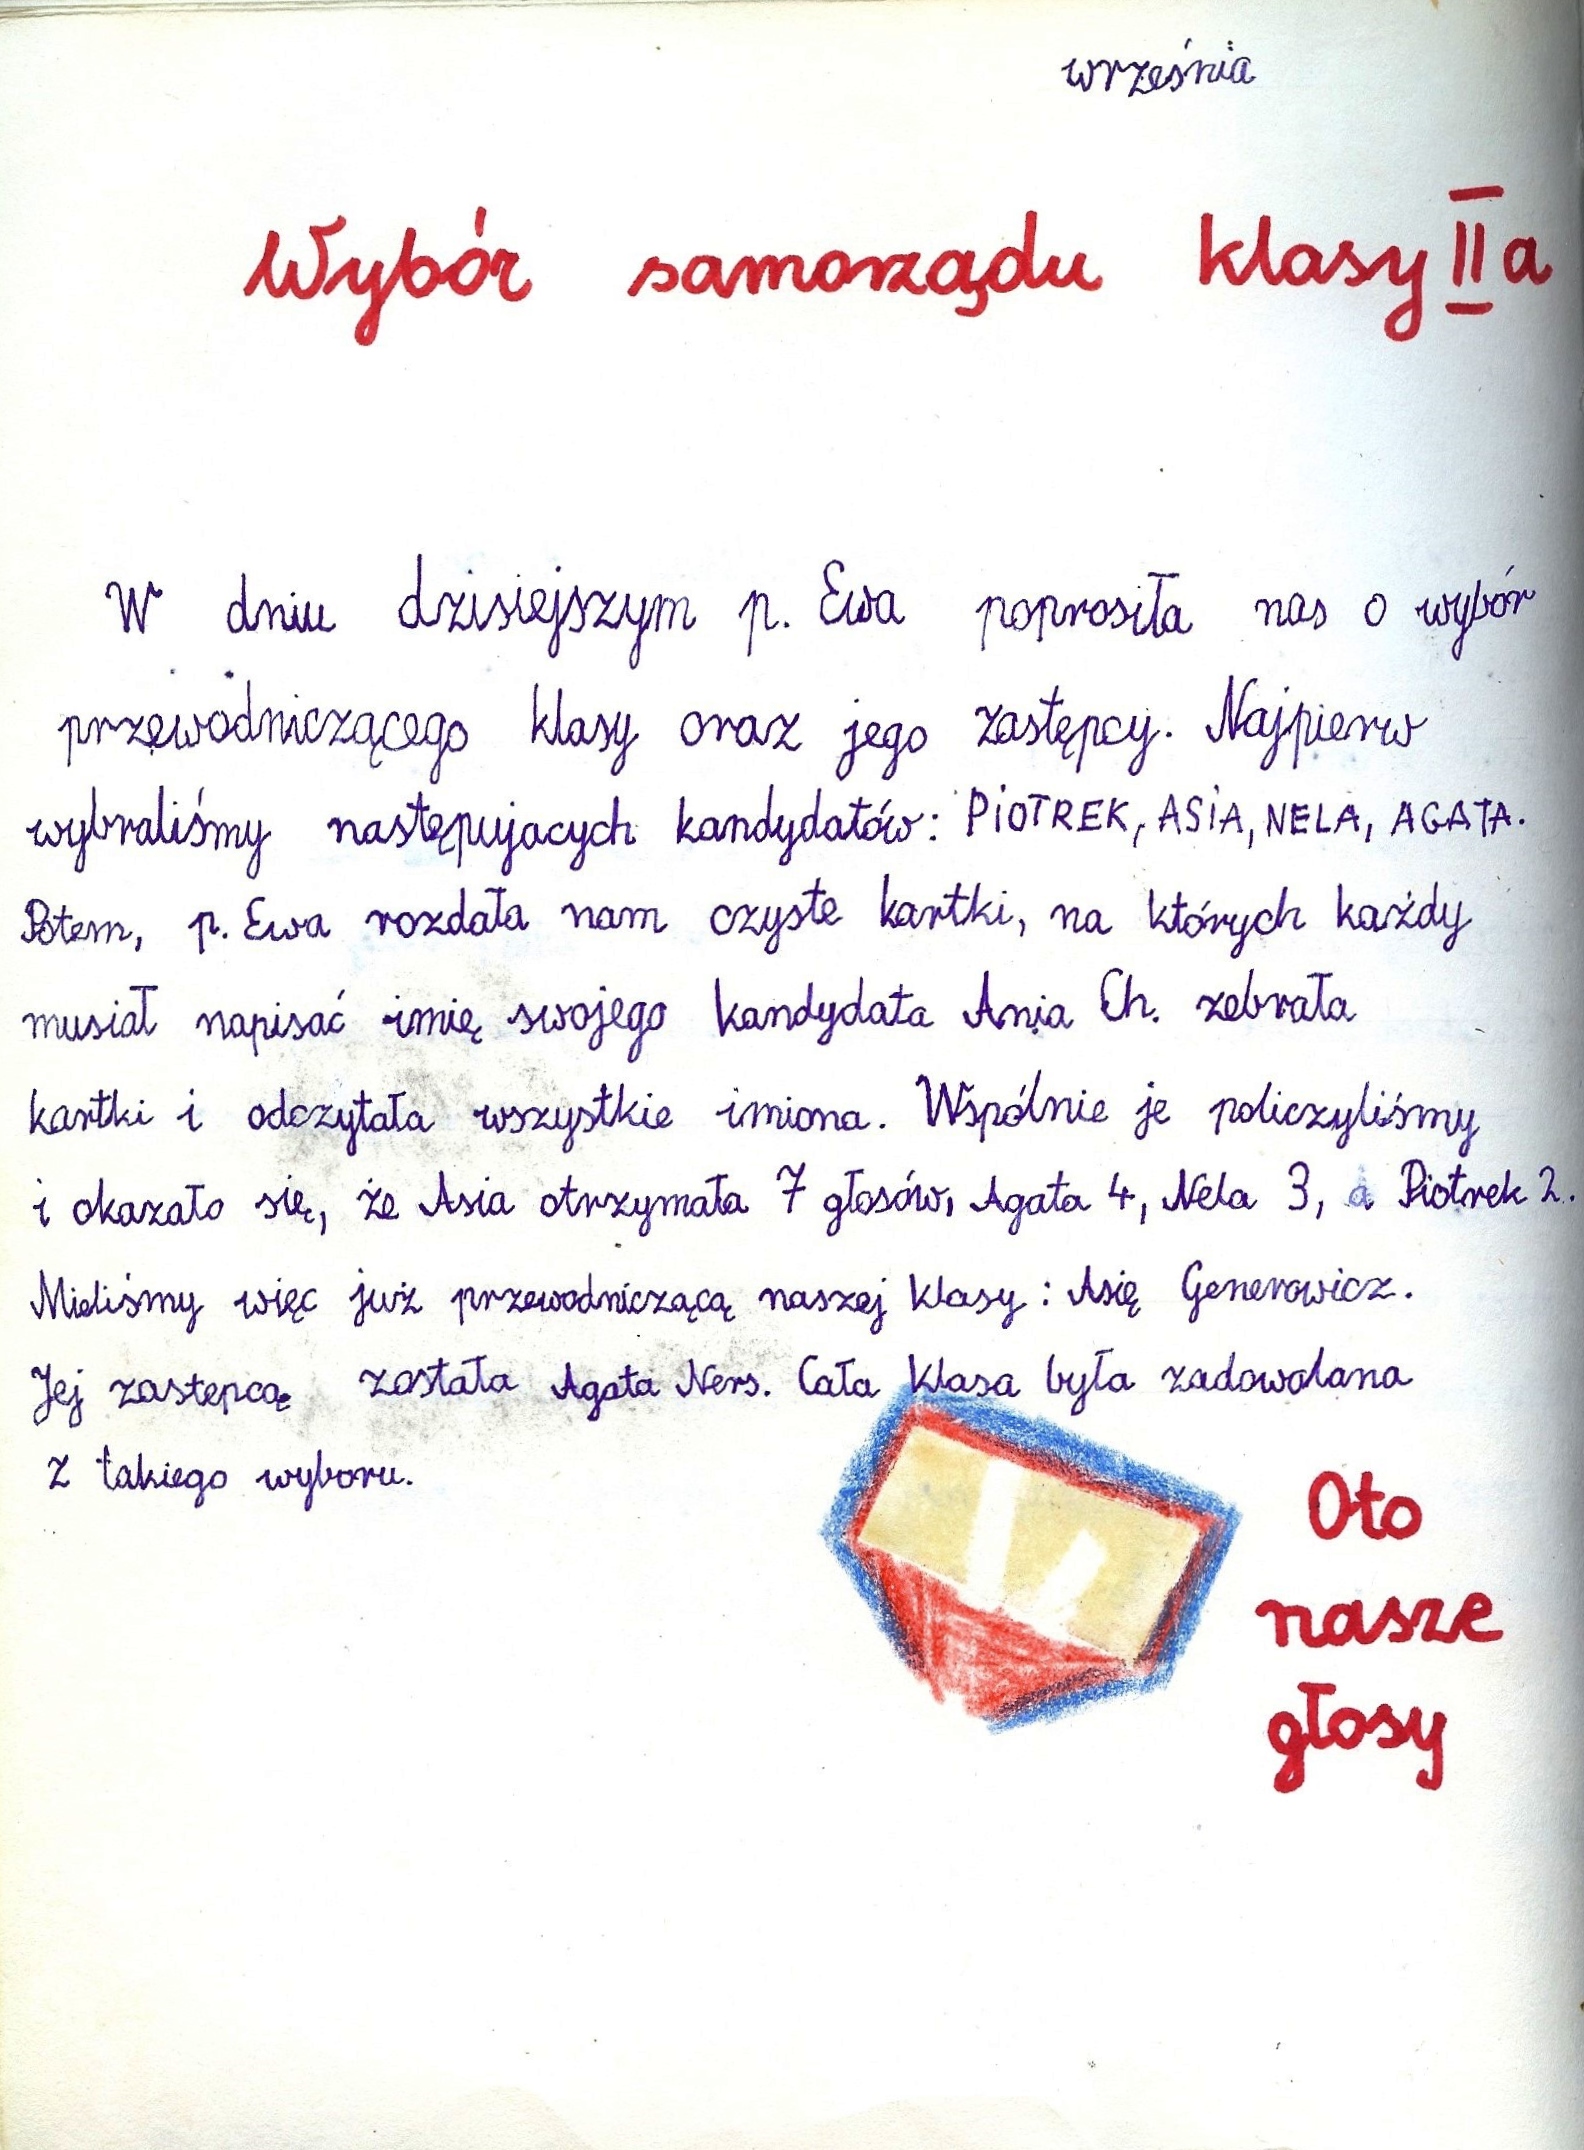 września
Wybór samorządu klasy II a
W dniu dzisiejszym p. Ewa poprosiła nas o wybór
przewodniczącego klasy oraz jego zastępcy. Najpierw
wybraliśmy następujacych kandydatów: PIOTREK, ASIA, NELA, AGATA.
Potem, p. Ewa rozdała nam czyste kartki, na których każdy
musiał napisać imię swojego kandydata Ania Ch. zebrała
kartki i odczytała wszystkie imiona. Wspólnie je policzyliśmy
i okazało się, że Asia otrzymała 7 głosów, Agata 4, Nela 3, a Piotrek 2.
Mieliśmy więc już przewodniczącą naszej klasy: Asię Generowicz.
Jej zastępcą została Agata Ners. Cała klasa była zadowolana
z takiego wyboru.
Oto
nasze
głosy